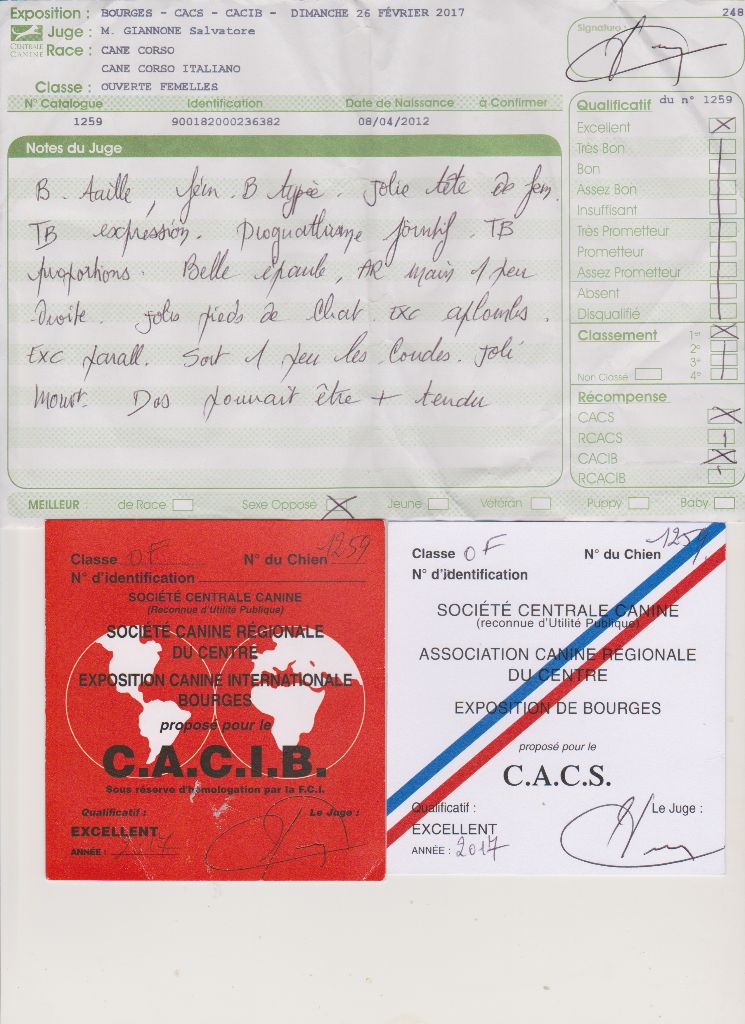 Exposition : BOURGES - CACS - CACIB - DIMANCHE 26 FÉVRIER 2017
248
CENTRALE CANINE
Juge : M. GIANNONE Salvatore
Signature :
Race : CANE CORSO
CANE CORSO ITALIANO
Classe : OUVERTE FEMELLES
N° Catalogue Identification Date de Naissance à Confirmer
1259 900182000236382 08/04/2012
Notes du Juge
B. taille, fém. B typée. Jolie tête de fem.
TB expression. Prognathisme TB
proportions. Belle épaule, AR mais 1 peu
droite. Jolis pieds de Chat. Exc aplombs.
Exc parall. Sort 1 peu les Coudes. Joli
Mouvt. Dos pourrait être + tendu
Qualificatif du n° 1259
Excellent X
Très Bon
Bon
Assez Bon
Insuffisant
Très Prometteur
Prometteur
Assez Prometteur
Absent
Disqualifié
Classement 1er X
2e
3e
Non Classé 4e
Récompense
CACS X
RCACS
CACIB X
RCACIB
MEILLEUR : de Race Sexe Opposé X Jeune Vétéran Puppy Baby
Classe OF N° du Chien 1259
N° d'identification
SOCIÉTÉ CENTRALE CANINE
(Reconnue d'Utilité Publique)
SOCIÉTÉ CANINE RÉGIONALE
DU CENTRE
EXPOSITION CANINE INTERNATIONALE
BOURGES
proposé pour le
C.A.C.I.B.
Sous réserve d'homologation par la F.C.I.
Qualificatif : Le Juge :
EXCELLENT
ANNÉE : 2017
Classe OF N° du Chien 1259
N° d'identification
SOCIÉTÉ CENTRALE CANINE
(reconnue d'Utilité Publique)
ASSOCIATION CANINE RÉGIONALE
DU CENTRE
EXPOSITION DE BOURGES
proposé pour le
C.A.C.S.
Qualificatif : Le Juge :
EXCELLENT
ANNÉE : 2017